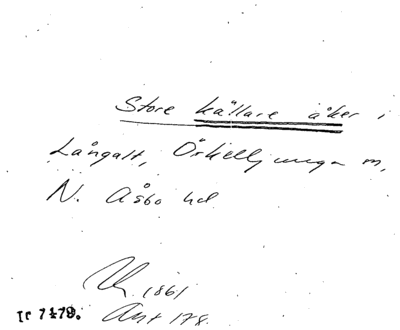 Store källare åker i
Långalt, Örkelljunga m,
N. Åsbo hd
1861
Ant 178.